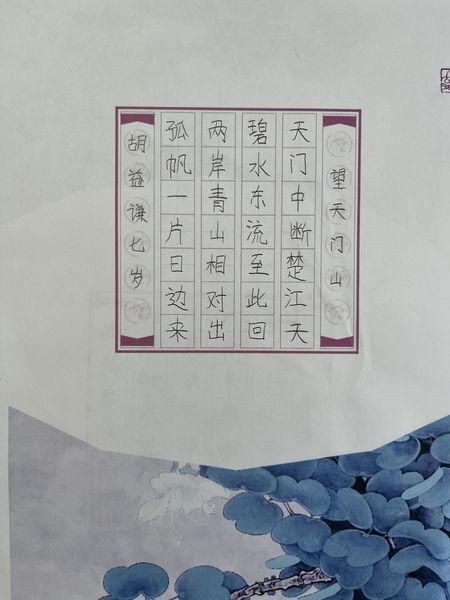 望天门山
天门中断楚江天
碧水东流至此回
两岸青山相对出
孤帆一片日边来
胡益谦七岁